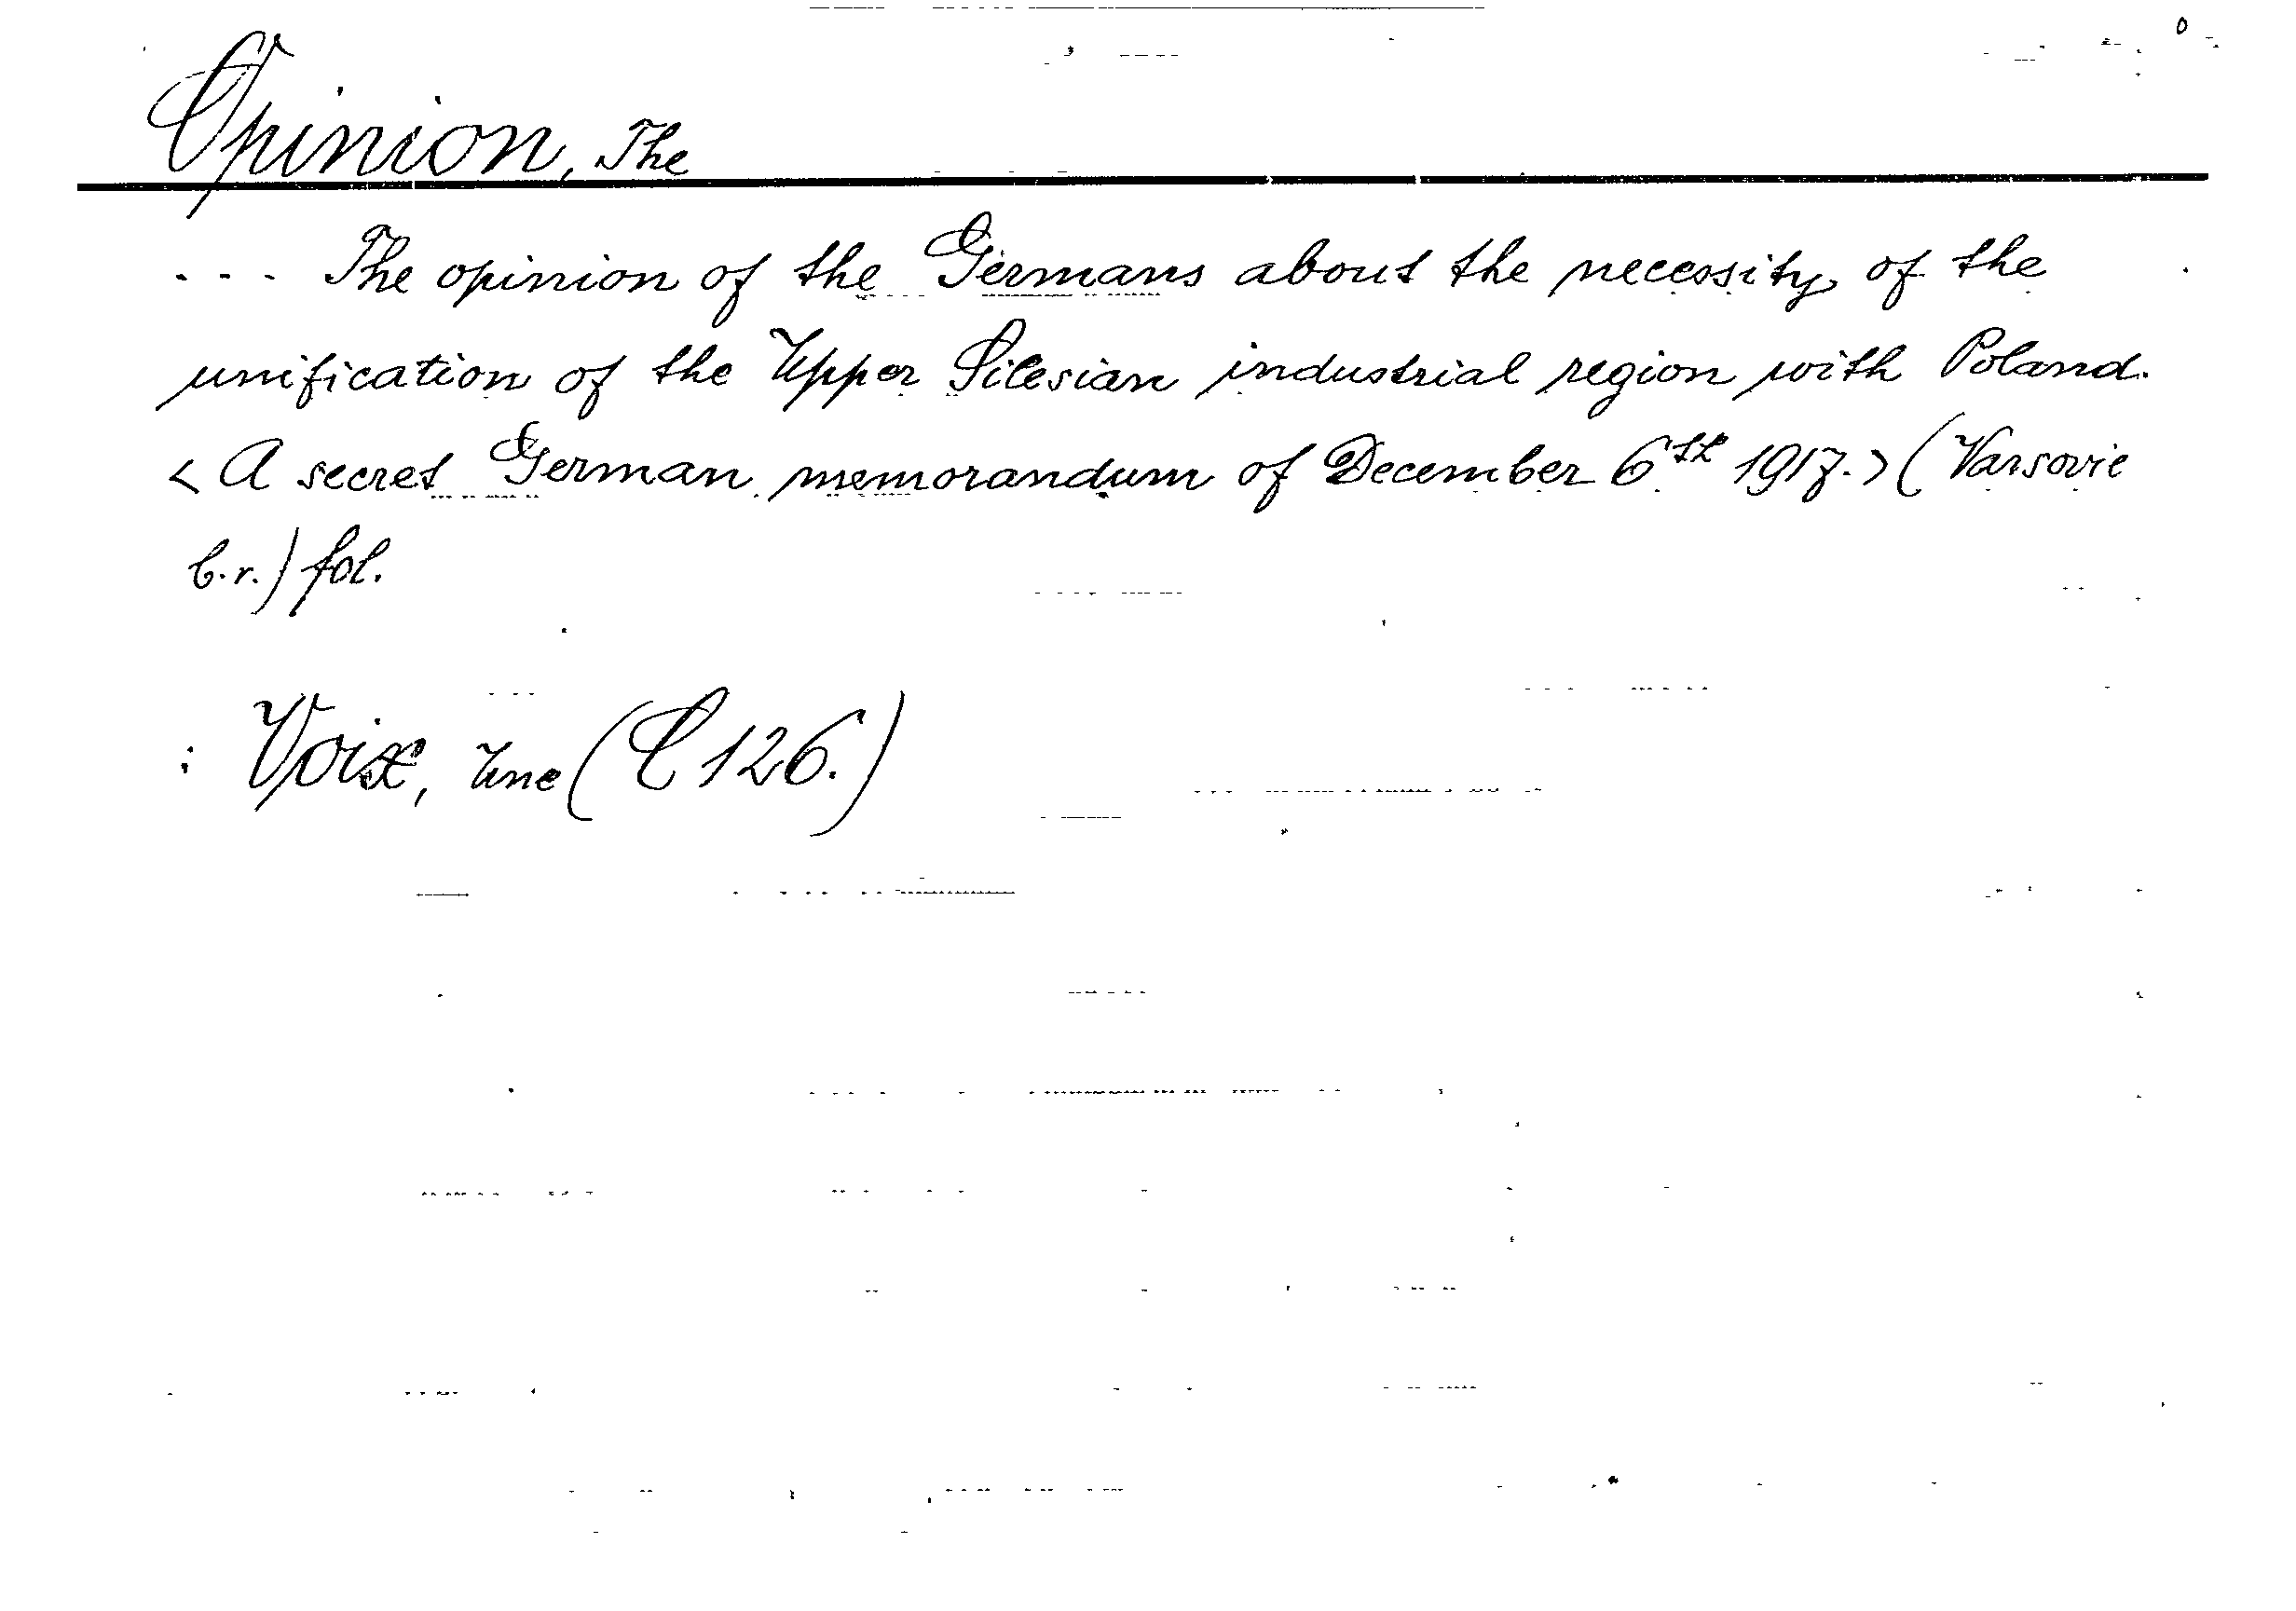 Opinion, The
... The opinion of the Germans about the necessity of the
unification of the Upper Silesian industrial region with Poland.
< A secret German memorandum of December 6th 1917.> (Varsovie
b.r.) fol.
: Voix, Une (C 126.)